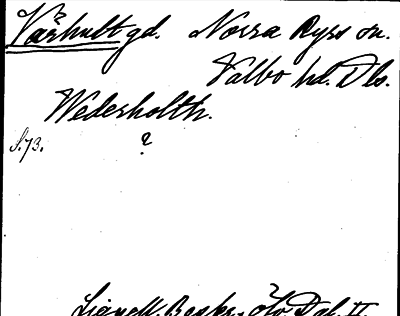 Vårhult gd. Norra Ryrs sn.
Valbo hd. Dls.
Wederholth.
S. 73. ?
Lignell. Beskr. öfv. Dal. II